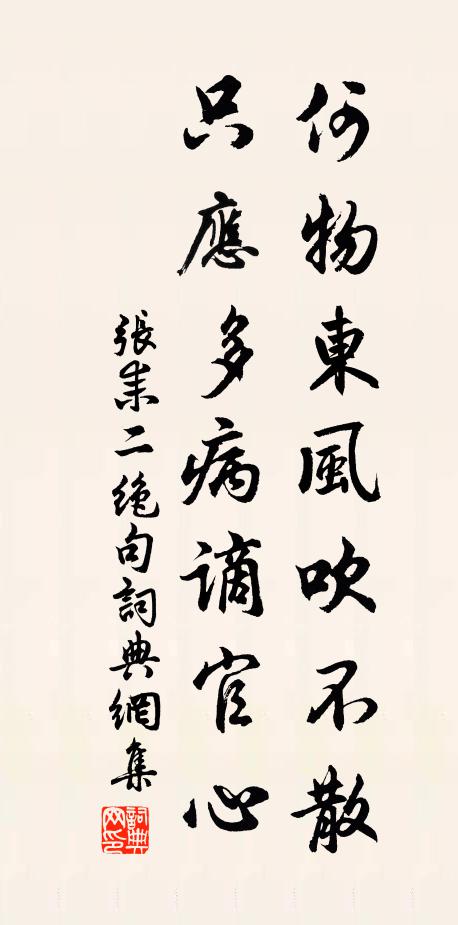 何物東風吹不散
只應多病謫官心
張耒二絶句詞典網集
詞典网印